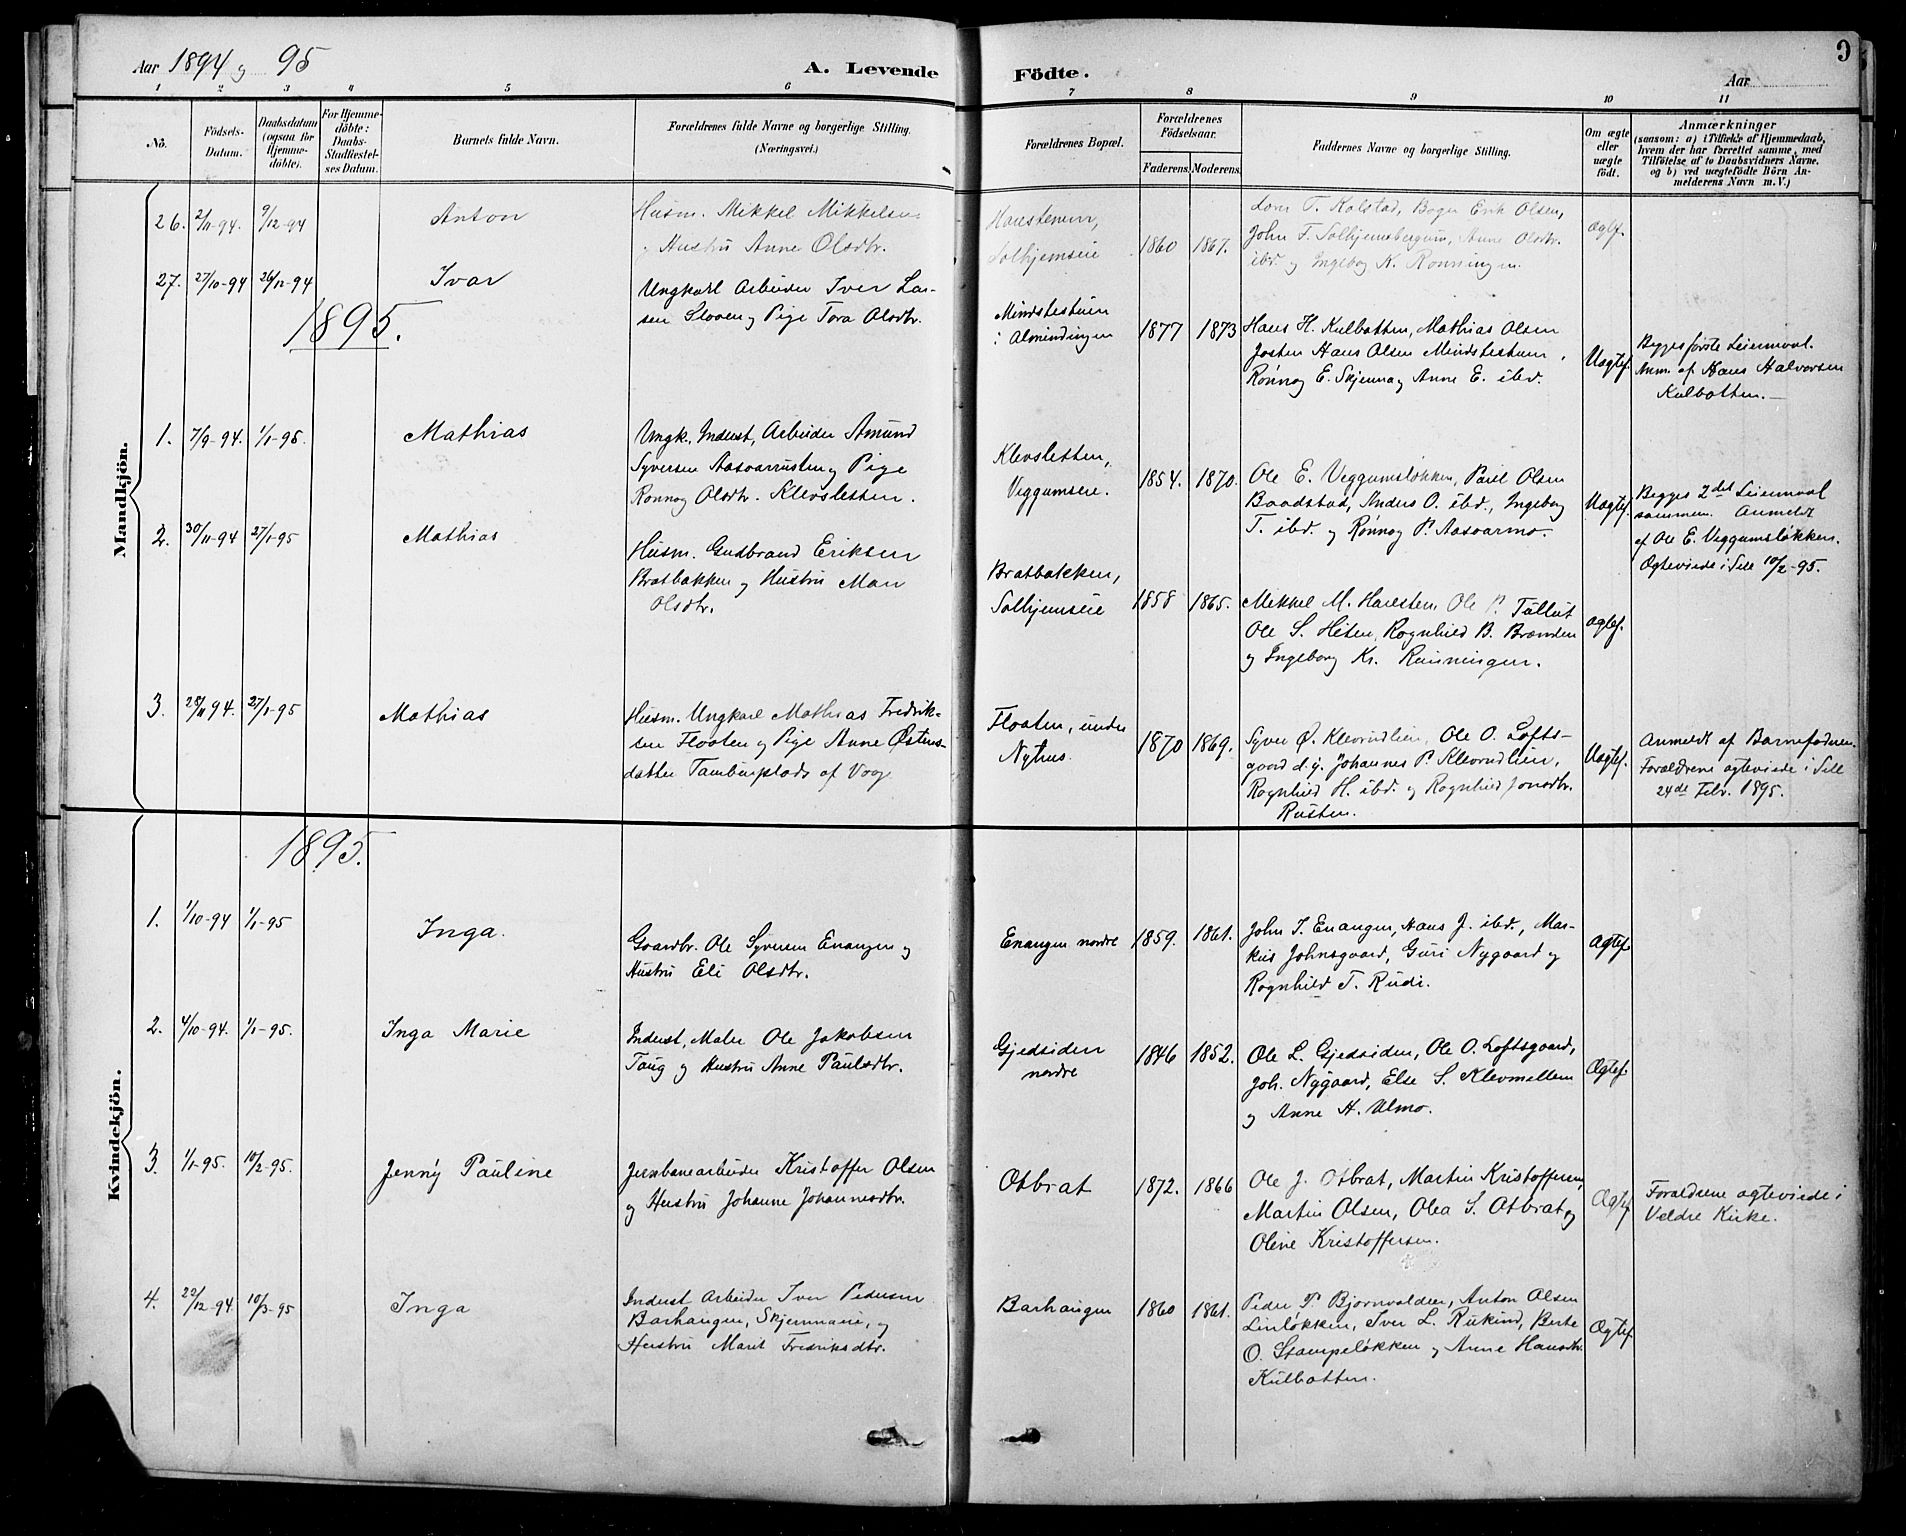 Aar 1894 og 95
A. Levende
Födte.
Aar
9
1 2 3 4 5 6 7 8 9 10 11
No.
Födsels-
Datum.
Daabsdatum
(ogsaa for
Hjemme-
döbte).
For Hjemme-
döbte:
Daabs-
Stadfæstel-
ses Datum.
Barnets fulde Navn.
Forældrenes fulde Navne og borgerlige Stilling.
(Næringsvei.)
Forældrenes Bopæl.
Forældrenes
Födselsaar.
Faderens. Moderens.
Faddernes Navne og borgerlige Stilling.
Om ægte
eller
uægte
født.
Anmærkninger
(saasom: a) i Tilfælde af Hjemmedaab,
hvem der har forrettet samme, med
Tilföielse af to Daabsvidners Navne.
og b) ved uægtefödte Börn An-
melderens Navn m. V.)
Mandkjön.
26. 2/11-94. 9/12-94 Anton
Husm. Mikkel Mikkelsen
og Hustru Anne Olsdtr.
Solhjemseie
1860 1867.
T. Kolstad, Erik Olsen,
John F. Solhjemsbergum, Anne Olsdtr.
ibd. og Ingebog K. Rønningen.
Ægtef.
27. 27/10-94 26/12-94 Ivar
Ungkarl Arbeider Iver Lar-
sen Sloven og Pige Tora Olsdtr.
Mindstestuen
i Almindingen
1877 1873
Hans H. Kulbotten, Mathias Olsen
Josten Hans Olsen Mindstestuen,
Rønnog E. Skjenna og Anne E. ibd.
Uægtef.
Begges første Leiermaal.
Anm. af Hans Halvorsen
Kulbotten.—
1895.
1. 7/9-94. 1/1-95. Mathias
Ungk. Inderst, Arbeider Amund
Syversen Aasoarrusten og Pige
Rønnog Olsdtr. Klevsletten.
Klevsletten,
Veggumseie.
1854. 1870.
Ole E. Veggumsløkken, Paul Olsen
Baadstad, Anders O. ibd., Ingebog
T. ibd. og Rønnog P. Aasoarmo.
Uægtef.
Begges 2det Leiermaal
sammen. Anmeldt
af Ole E. Veggumsløkken.
Ægteviede i Sell 10/2-95.
2. 30/11-94 27/1-95 Mathias
Husm. Gudbrand Eriksen
Bratbakken og Hustru Mari
Olsdtr.
Bratbakken,
Solhjemseie
1858 1865.
Mikkel M. Haugsten, Ole P. Tullut
Ole S. Heten, Rognhild B. Brænden
og Ingeborg Kr. Rønningen.
Ægtef.
3. 28/11 94. 27/1-95 Mathias
Husm. Ungkarl Mathias Fredrik-
sen Flaaten og Pige Anne Østens-
datter Tamburplads af Vaage
Flaaten, under
Nyhus.
1870 1869.
Syver Ø. Klevrudlien, Ole O. Lofts-
gaard d.y. Johannes P. Klevrudlien,
Rognhild H. ibd. og Rognhild Jonsdtr.
Rusten.
Uægtef.
Anmeldt af Barnefaderen.
Forældrene ægteviede i Sell
24de Febr. 1895.
Kvindekjön.
1895.
1. 1/10-94 1/1-95 Inga.
Gaardbr. Ole Syversen Enangen og
Hustru Eli Olsdtr.
Enangen nordre
1859. 1861.
John I. Enangen, Hans J. ibd., Mar-
kus Johnsgaard, Guri Nygaard og
Rognhild T. Rudi.
Ægtef.
2. 4/10-94. 1/1-95. Inga Marie
Inderst, Maler Ole Jakobsen
Taug og Hustru Anne Paulsdtr.
Gjedsiden
nordre
1846 1852.
Ole L. Gjedsiden, Ole O. Loftsgaard,
Joh. Nygaard, Else S. Klevmellem
og Anne H. Ulmo.
Ægtef.
3. 1/1-95. 10/2-95. Jenny Pauline
Jernbanearbeider Kristoffer Olsen
og Hustru Johanne Johannesdtr.
Otbrat
1872. 1866
Ole J. Otbrat, Martin Kristoffersen,
Martin Olsen, Olea S. Otbrat og
Oline Kristoffersen.
Ægtef.
Forældrene ægteviede i
Veldre Kirke.
4. 22/12-94. 10/3-95 Inga
Inderst Arbeider Iver Pedersen
Barhaugen, Skjennaeie, og
Hustru Marit Fredriksdtr.
Barhaugen
1860 1861.
Peder P. Bjornvolden, Anton Olsen
Linløkken, Iver L. Rukind, Berte
O. Stampeløkken og Anne Hansdtr.
Kulbotten.
Ægtef.